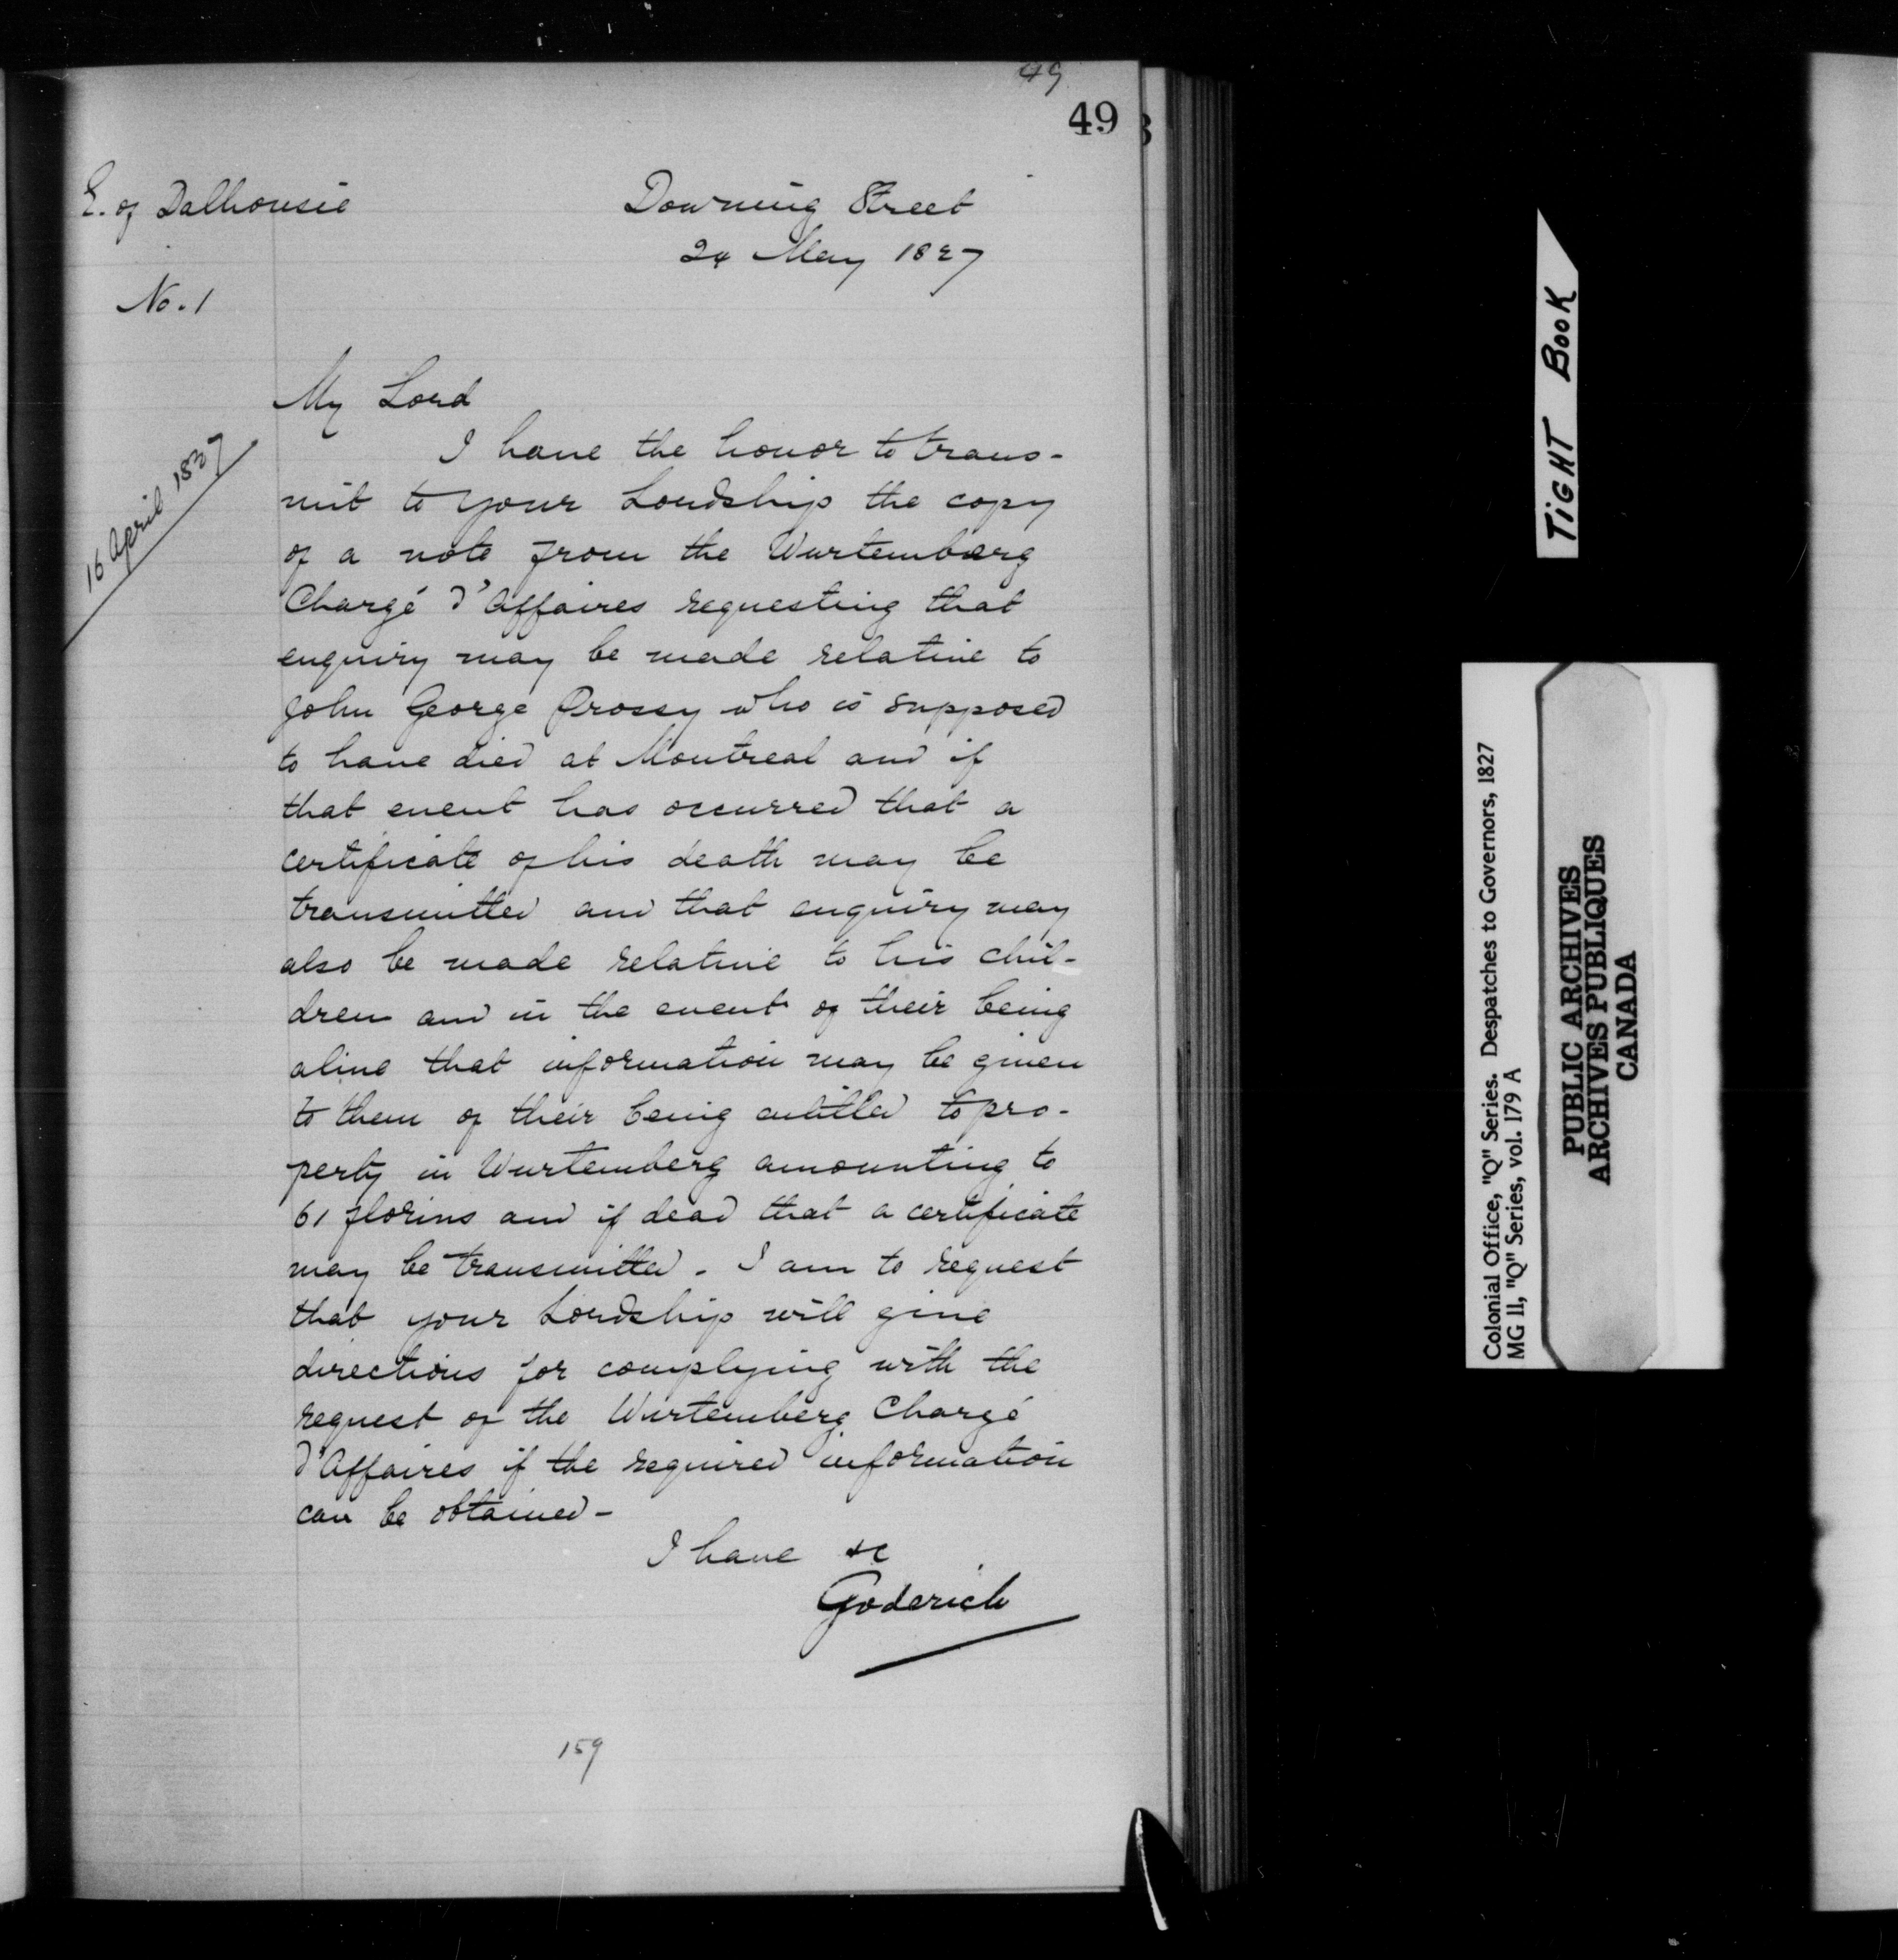 49
49
E. of Dalhousie
Downing Street
24 May 1827
No. 1
My Lord
16 April 1827
I have the honor to trans-
mit to your Lordship the copy
of a note from the Wurtemberg
Chargé d'Affaires requesting that
enquiry may be made relative to
John George Prossy who is supposed
to have died at Montreal and if
that event has occurred that a
certificate of his death may be
transmitted and that enquiry may
also be made relative to his chil-
dren and in the event of their being
alive that information may be given
to them of their being entitled to pro-
perty in Wurtemberg amounting to
61 florins and if dead that a certificate
may be transmitted. I am to request
that your Lordship will give
directions for complying with the
request of the Wurtemberg Chargé
d'Affaires if the required information
can be obtained -
I have &c
Goderich
159
TIGHT BOOK
Colonial Office, "Q" Series. Despatches to Governors, 1827
MG 11, "Q" Series, vol. 179 A
PUBLIC ARCHIVES
ARCHIVES PUBLIQUES
CANADA